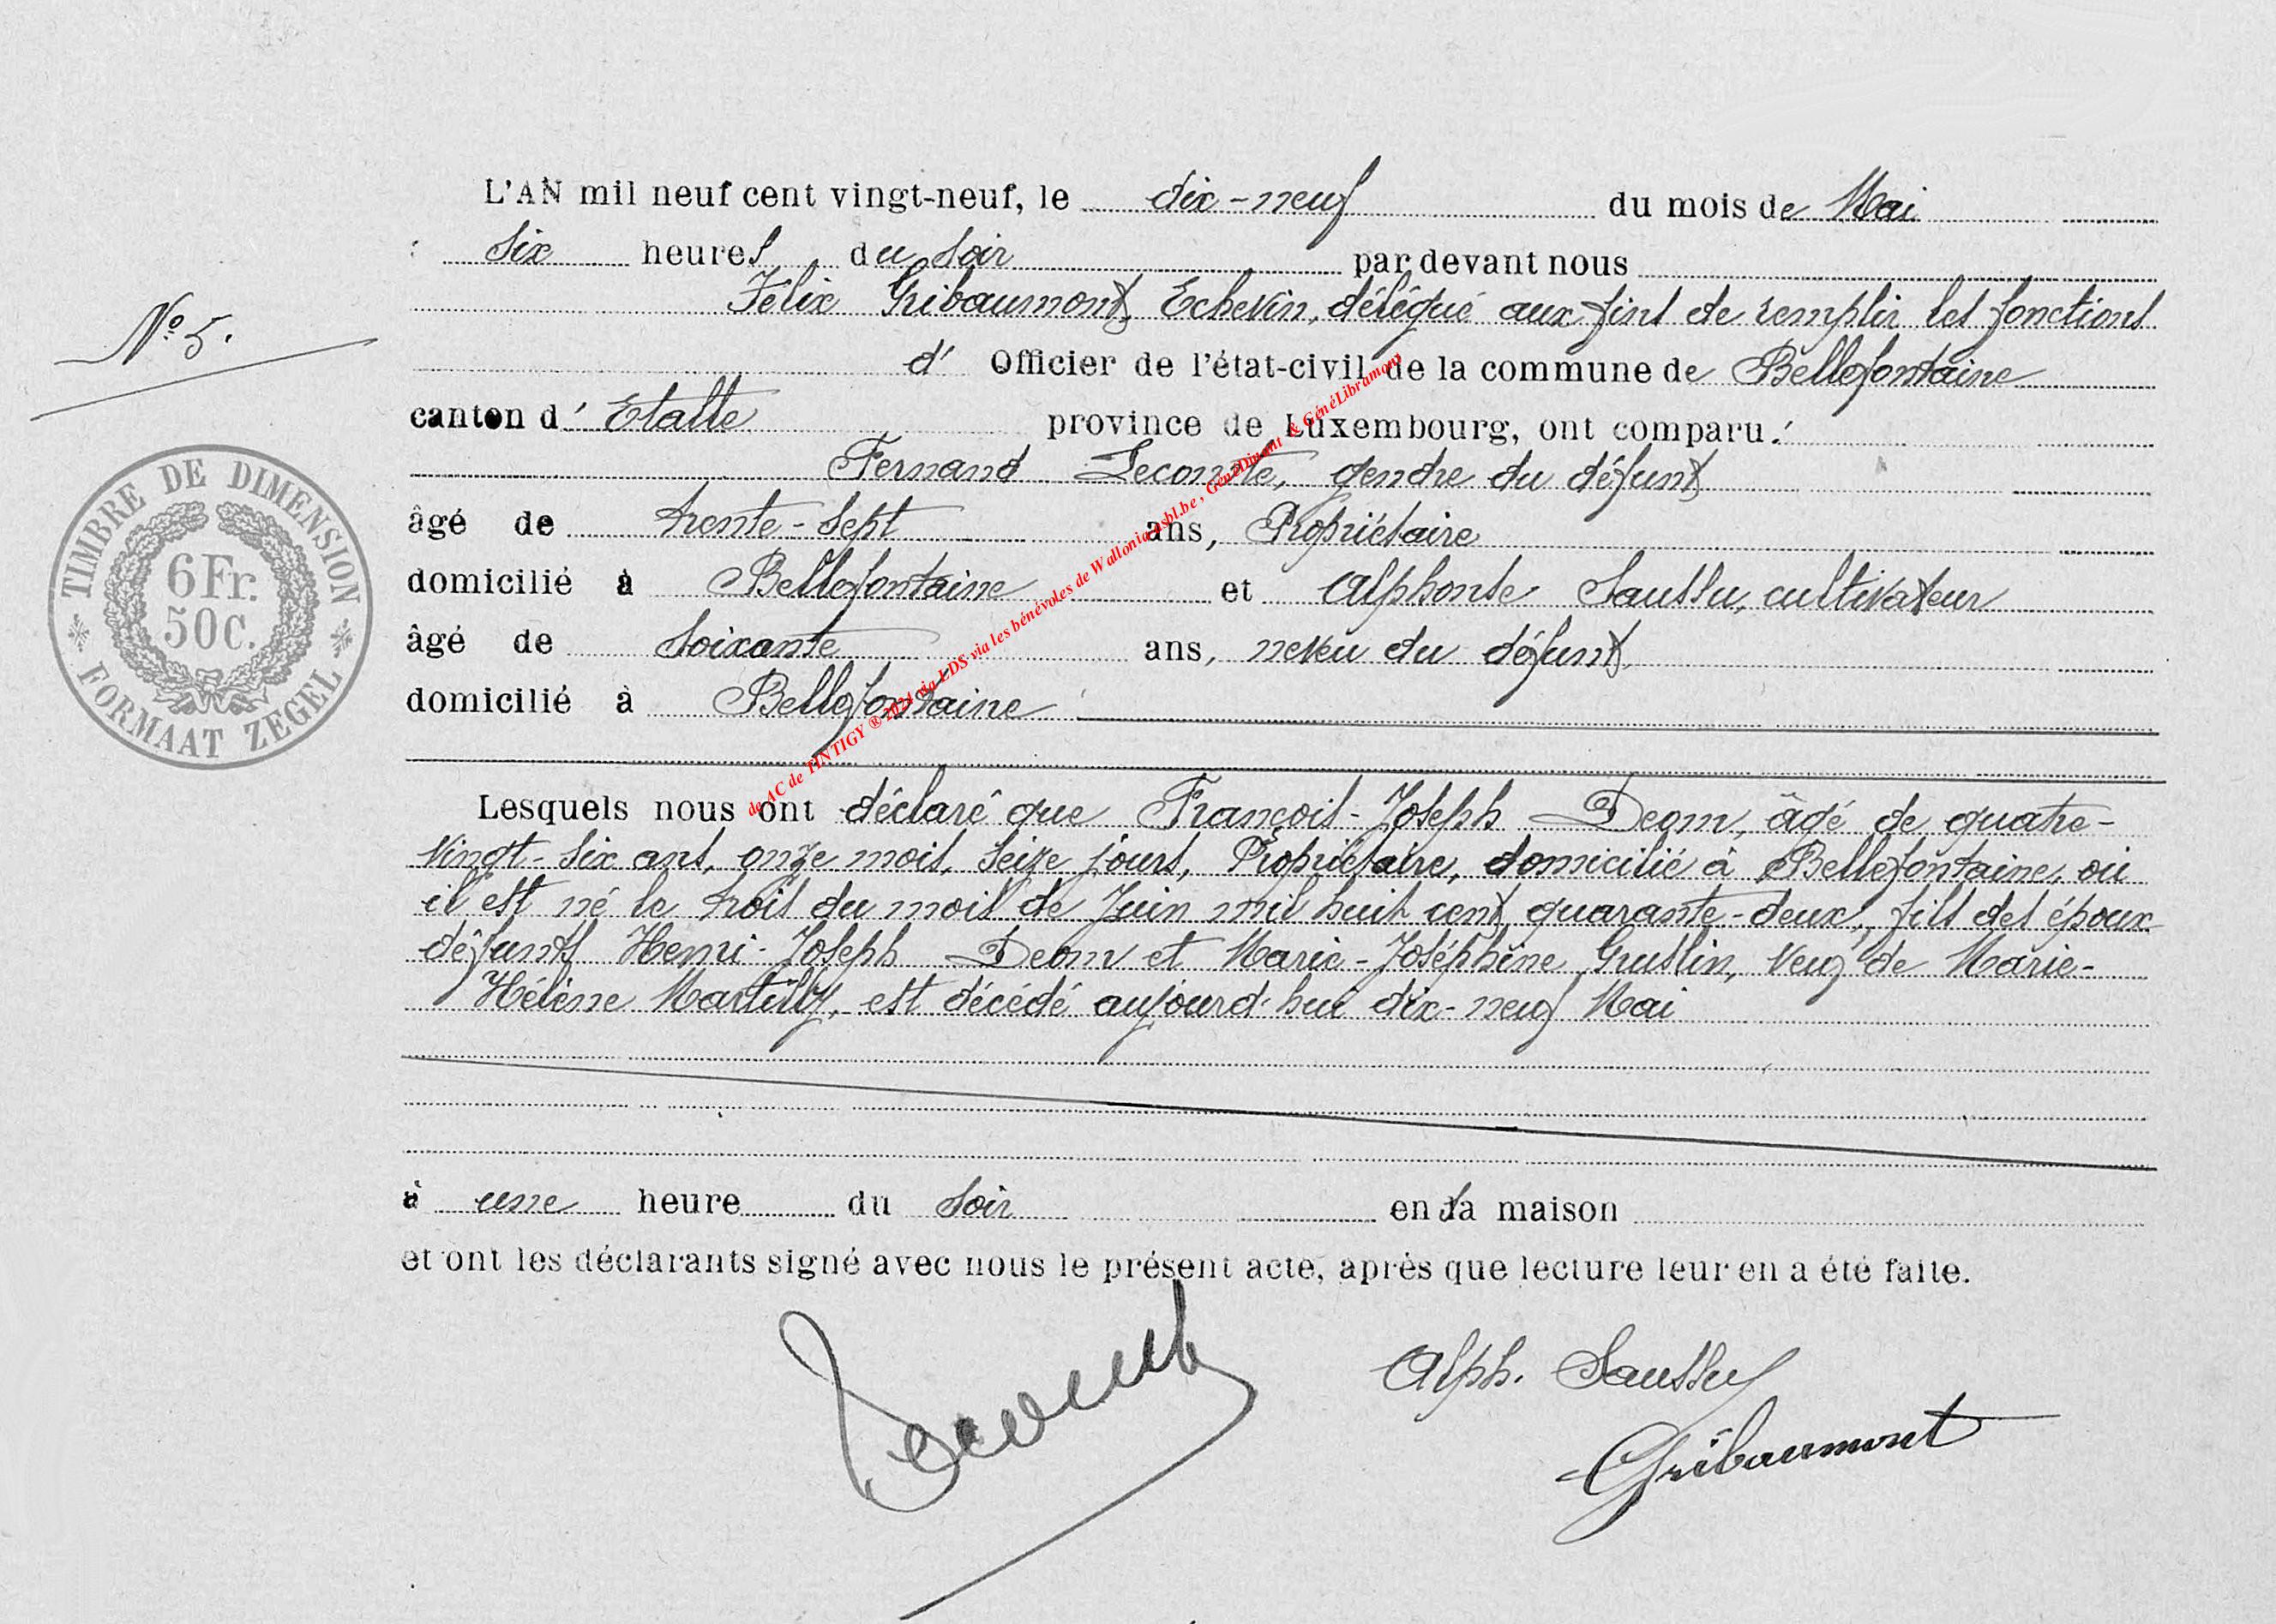 L'AN mil neuf cent vingt-neuf, le dix-neuf du mois de Mai
six heures du soir par devant nous
Felix Gribaumont, Echevin, délégué aux fins de remplir les fonctions
N° 5.
d' Officier de l'état-civil de la commune de Bellefontaine
canton d' Etalle province de Luxembourg, ont comparu:
Fernand Lecomte, gendre du défunt
âgé de trente-sept ans, Propriétaire
domicilié à Bellefontaine et Alphonse Saussu, cultivateur
âgé de soixante ans, neveu du défunt
domicilié à Bellefontaine
TIMBRE DE DIMENSION
6 Fr.
50 C.
FORMAAT ZEGEL
de AC de TINTIGY ® 2024 via LDS via les bénévoles de Walloniaasbl.be, GénéDinant & GénéLibramont
Lesquels nous ont déclaré que François-Joseph Deom, âgé de quatre-
vingt-six ans, onze mois, seize jours, Propriétaire, domicilié à Bellefontaine, où
il est né le trois du mois de Juin mil huit cent quarante-deux, fils des époux
défunts Henri-Joseph Deom et Marie-Joséphine Gruslin, veuf de Marie-
Hélène Martilly, est décédé aujourd'hui dix-neuf Mai
à une heure du soir en sa maison
et ont les déclarants signé avec nous le présent acte, après que lecture leur en a été faite.
Lecomte
Alph. Saussu
Gribaumont